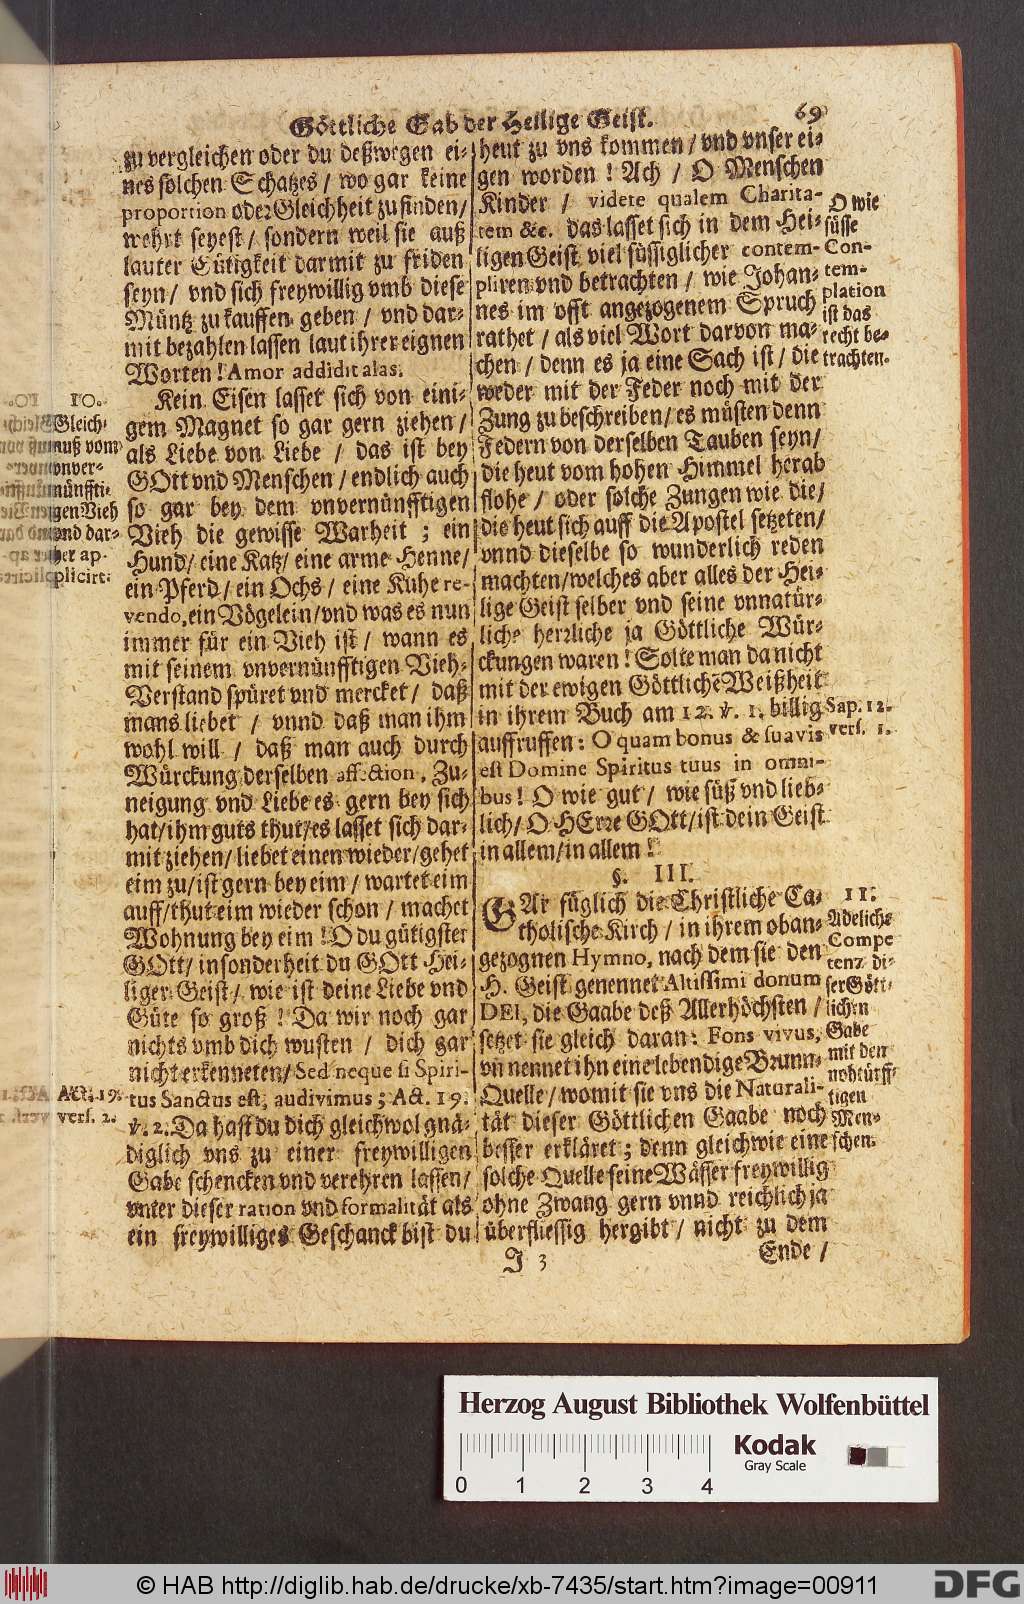 Göttliche Gab der Heilige Geist. 69
zu vergleichen oder du deßwegen ei-
nes solchen Schatzes / wo gar keine
proportion oder Gleichheit zu finden /
wehrt seyest / sondern weil sie auß
lauter Gütigkeit darmit zu friden
seyn / vnd sich freywillig vmb diese
Müntz zu kauffen geben / vnd dar-
mit bezahlen lassen laut ihrer eignen
Worten ! Amor addidit alas.
Kein Eisen lasset sich von eini-
gem Magnet so gar gern ziehen /
als Liebe von Liebe / das ist bey
GOtt vnd Menschen / endlich auch
so gar bey dem vnvernünfftigen
Vieh die gewisse Warheit ; ein
Hund / eine Katz / eine arme Henne /
ein Pferd / ein Ochs / eine Kuhe re-
vendo, ein Vögelein / vnd was es nun
immer für ein Vieh ist / wann es
mit seinem vnvernünfftigen Vieh-
Verstand spüret vnd mercket / daß
mans liebet / vnnd daß man ihm
wohl will / daß man auch durch
Würckung derselben affection, Zu-
neigung vnd Liebe es gern bey sich
hat / ihm guts thut / es lasset sich dar-
mit ziehen / liebet einen wieder / gehet
eim zu / ist gern bey eim / wartet eim
auff / thut eim wieder schon / machet
Wohnung bey eim ! O du gütigster
GOtt / insonderheit du GOtt Hei-
liger Geist / wie ist deine Liebe vnd
Güte so groß ! Da wir noch gar
nichts vmb dich wusten / dich gar
nicht erkenneten / Sed neque si Spiri-
tus Sanctus est, audivimus ; Act. 19.
v. 2. Da hast du dich gleichwol gnä-
diglich vns zu einer freywilligen
Gabe schencken vnd verehren lassen /
vnter dieser ration vnd formalität als
ein freywilliges Geschanck bist du
10.
Gleich-
nuß vom
vnver-
nünffti-
gen Vieh
vnd dar-
her ap-
plicirt:
Act. 19.
vers. 2.
heut zu vns kommen / vnd vnser ei-
gen worden ! Ach / O Menschen
Kinder / videte qualem Charita-
tem &c. das lasset sich in dem Hei-
ligen Geist viel süssiglicher contem-
pliren vnd betrachten / wie Johan-
nes im offt angezogenem Spruch
rathet / als viel Wort darvon ma-
chen / denn es ja eine Sach ist / die
weder mit der Feder noch mit der
Zung zu beschreiben / es müsten denn
Federn von derselben Tauben seyn /
die heut vom hohen Himmel herab
flohe / oder solche Zungen wie die /
die heut sich auff die Apostel setzeten /
vnnd dieselbe so wunderlich reden
machten / welches aber alles der Hei-
lige Geist selber vnd seine vnnatür-
liche herzliche ja Göttliche Wür-
ckungen waren ! Solte man da nicht
mit der ewigen Göttlichē Weißheit
in ihrem Buch am 12. v. 1. billig
auffruffen: O quam bonus & suavis
est Domine Spiritus tuus in omni-
bus ! O wie gut / wie süß vnd lieb-
lich / O HErre GOtt / ist dein Geist
in allem / in allem !
§. III.
GAr füglich die Christliche Ca-
tholische Kirch / in ihrem oban-
gezognen Hymno, nach dem sie den
H. Geist genennet Altissimi donum
DEI, die Gaabe deß Allerhöchsten /
setzet sie gleich daran: Fons vivus,
vñ nennet ihn eine lebendige Brunn-
Quelle / womit sie vns die Naturali-
tät dieser Göttlichen Gaabe noch
besser erkläret ; denn gleichwie eine
solche Quelle seine Wässer freywillig
ohne Zwang gern vnnd reichlich ja
überfliessig hergibt / nicht zu dem
J 3 Ende /
O wie
süsse
Con-
tem-
plation
ist das
recht be-
trachten.
Sap. 12.
vers. 1.
11.
Adeliche
Compe
tenz di-
ser Gött-
lichen
Gabe
mit den
nohtürff-
tigen
Men-
schen.
Herzog August Bibliothek Wolfenbüttel
Kodak
Gray Scale
0 1 2 3 4
© HAB http://diglib.hab.de/drucke/xb-7435/start.htm?image=00911
DFG